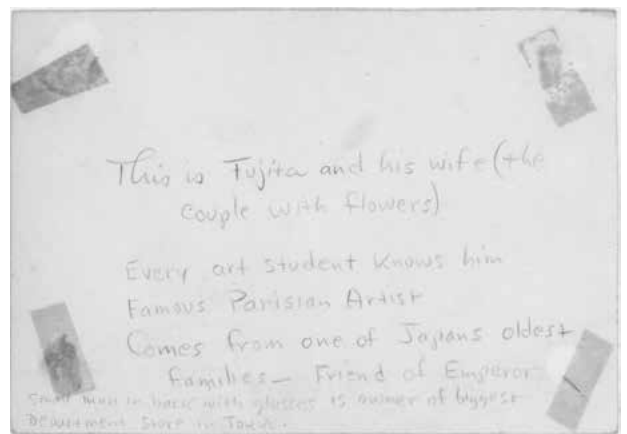 This is Fujita and his wife (the
couple with flowers)
Every art student knows him
Famous Parisian Artist
Comes from one of Japans oldest
families— Friend of Emperor
Small man in back with glasses is owner of biggest
Department Store in Tokyo.